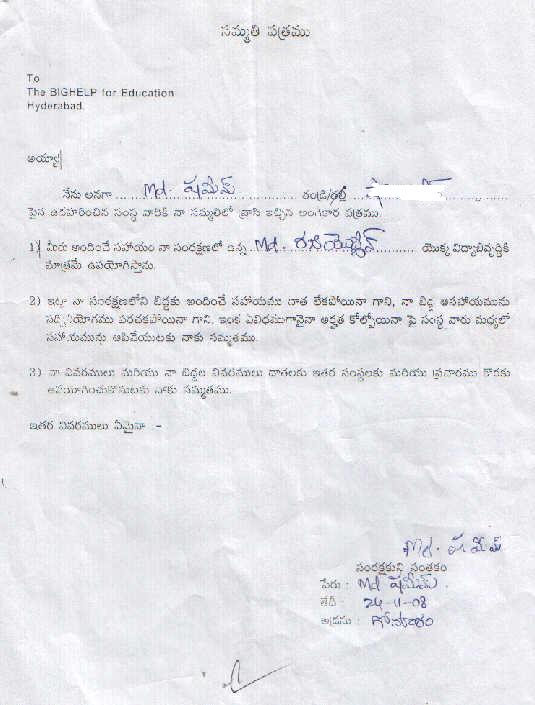 సమ్మతి పత్రము
To
The BIGHELP for Education
Hyderabad.
అయ్యా|
నేను అనగా ... Md. షమీమ్ ... తండ్రి/తల్లి ...
పైన ఉదహరించిన సంస్థ వారికి నా సమ్మతితో వ్రాసి ఇచ్చిన అంగీకార పత్రము.
1) మీరు అందించే సహాయం నా సంరక్షణలో ఉన్న Md. ... యొక్క విద్యాభివృద్ధికి
మాత్రమే ఉపయోగిస్తాను.
2) ఇట్లా నా సంరక్షణలోని బిడ్డకు అందించే సహాయము దాత లేకపోయినా గాని, నా బిడ్డ ఆసహాయమును
సద్వినియోగము పరచకపోయినా గాని, ఇంక ఏవిధముగానైనా అర్హత కోల్పోయినా పై సంస్థ వారు మధ్యలో
సహాయమును ఆపివేయుటకు నాకు సమ్మతము.
3) నా వివరములు మరియు నా బిడ్డల వివరములు దాతలకు ఇతర సంస్థలకు మరియు ప్రచారము కొరకు
ఉపయోగించుకొనుటకు నాకు సమ్మతము.
ఇతర వివరములు ఏమైనా -
Md. షమీమ్
సంరక్షకుని సంతకం
పేరు : Md షమీమ్
తేదీ : 24-11-08
అడ్రసు :